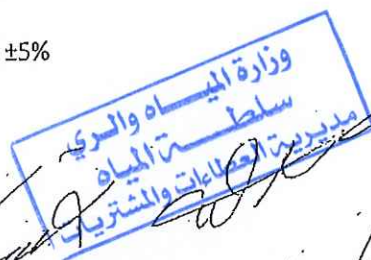 ±5%
وزارة المياه والري
سلطة المياه
مديرية العطاءات والمشتريات